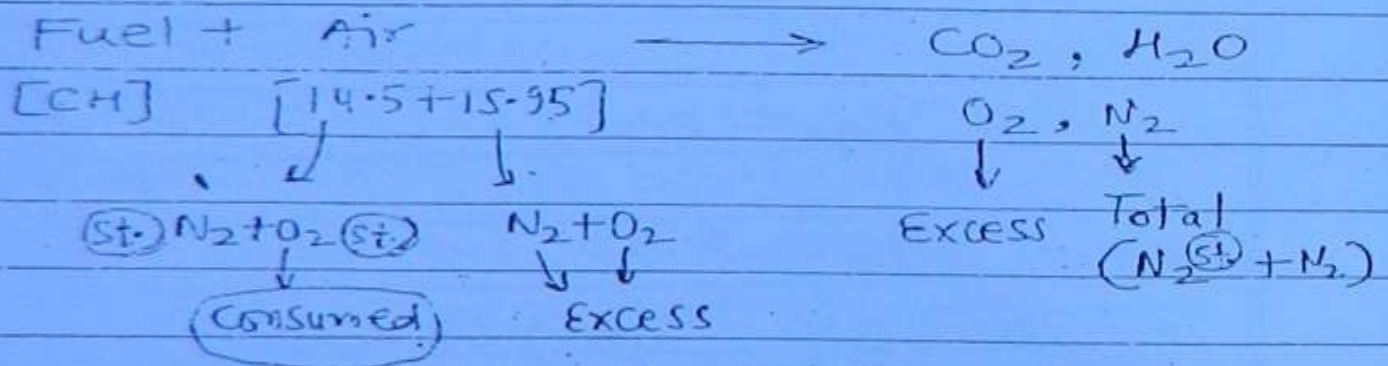 Fuel + Air ⟶ CO₂, H₂O
[CH] [14.5+15.95] O₂, N₂
↙ ↓ ↓ ↓
(St.) N₂+O₂ (St.) N₂+O₂ Excess Total
↓ ↘ ↓ (N₂(St.) + N₂)
Consumed Excess